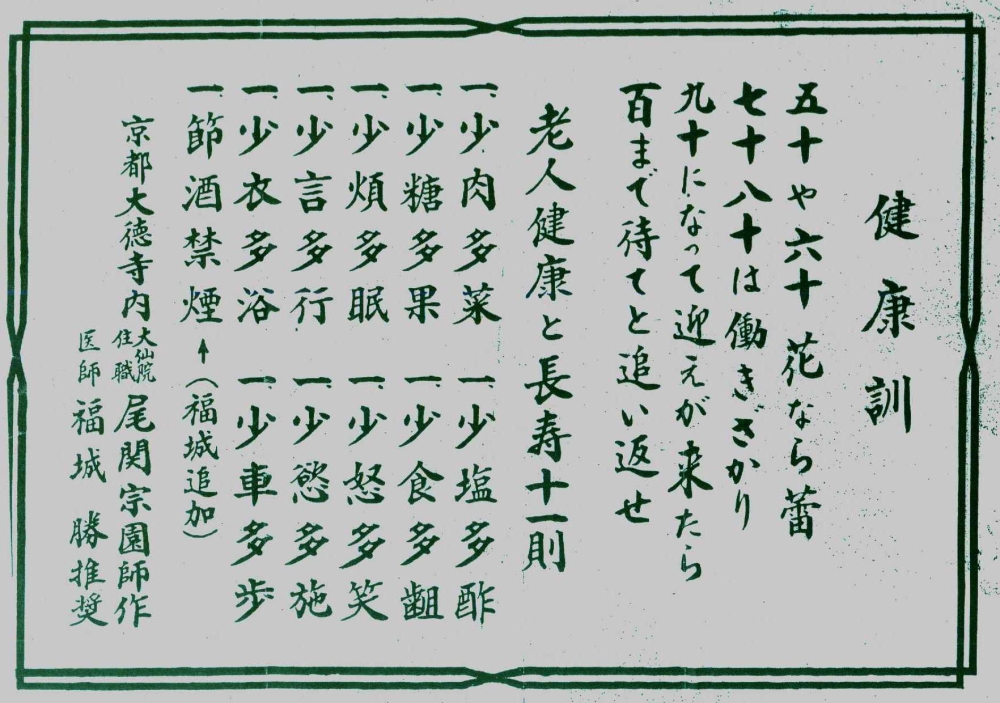 健康訓
五十や六十花なら蕾
七十八十は働きざかり
九十になって迎えが来たら
百まで待てと追い返せ
老人健康と長寿十一則
一、少肉多菜 一、少塩多酢
一、少糖多果 一、少食多齟
一、少煩多眠 一、少怒多笑
一、少言多行 一、少慾多施
一、少衣多浴 一、少車多歩
一、節酒禁煙↑(福城追加)
京都大徳寺内 大仙院住職 尾関宗園師作
医師 福城 勝推奨